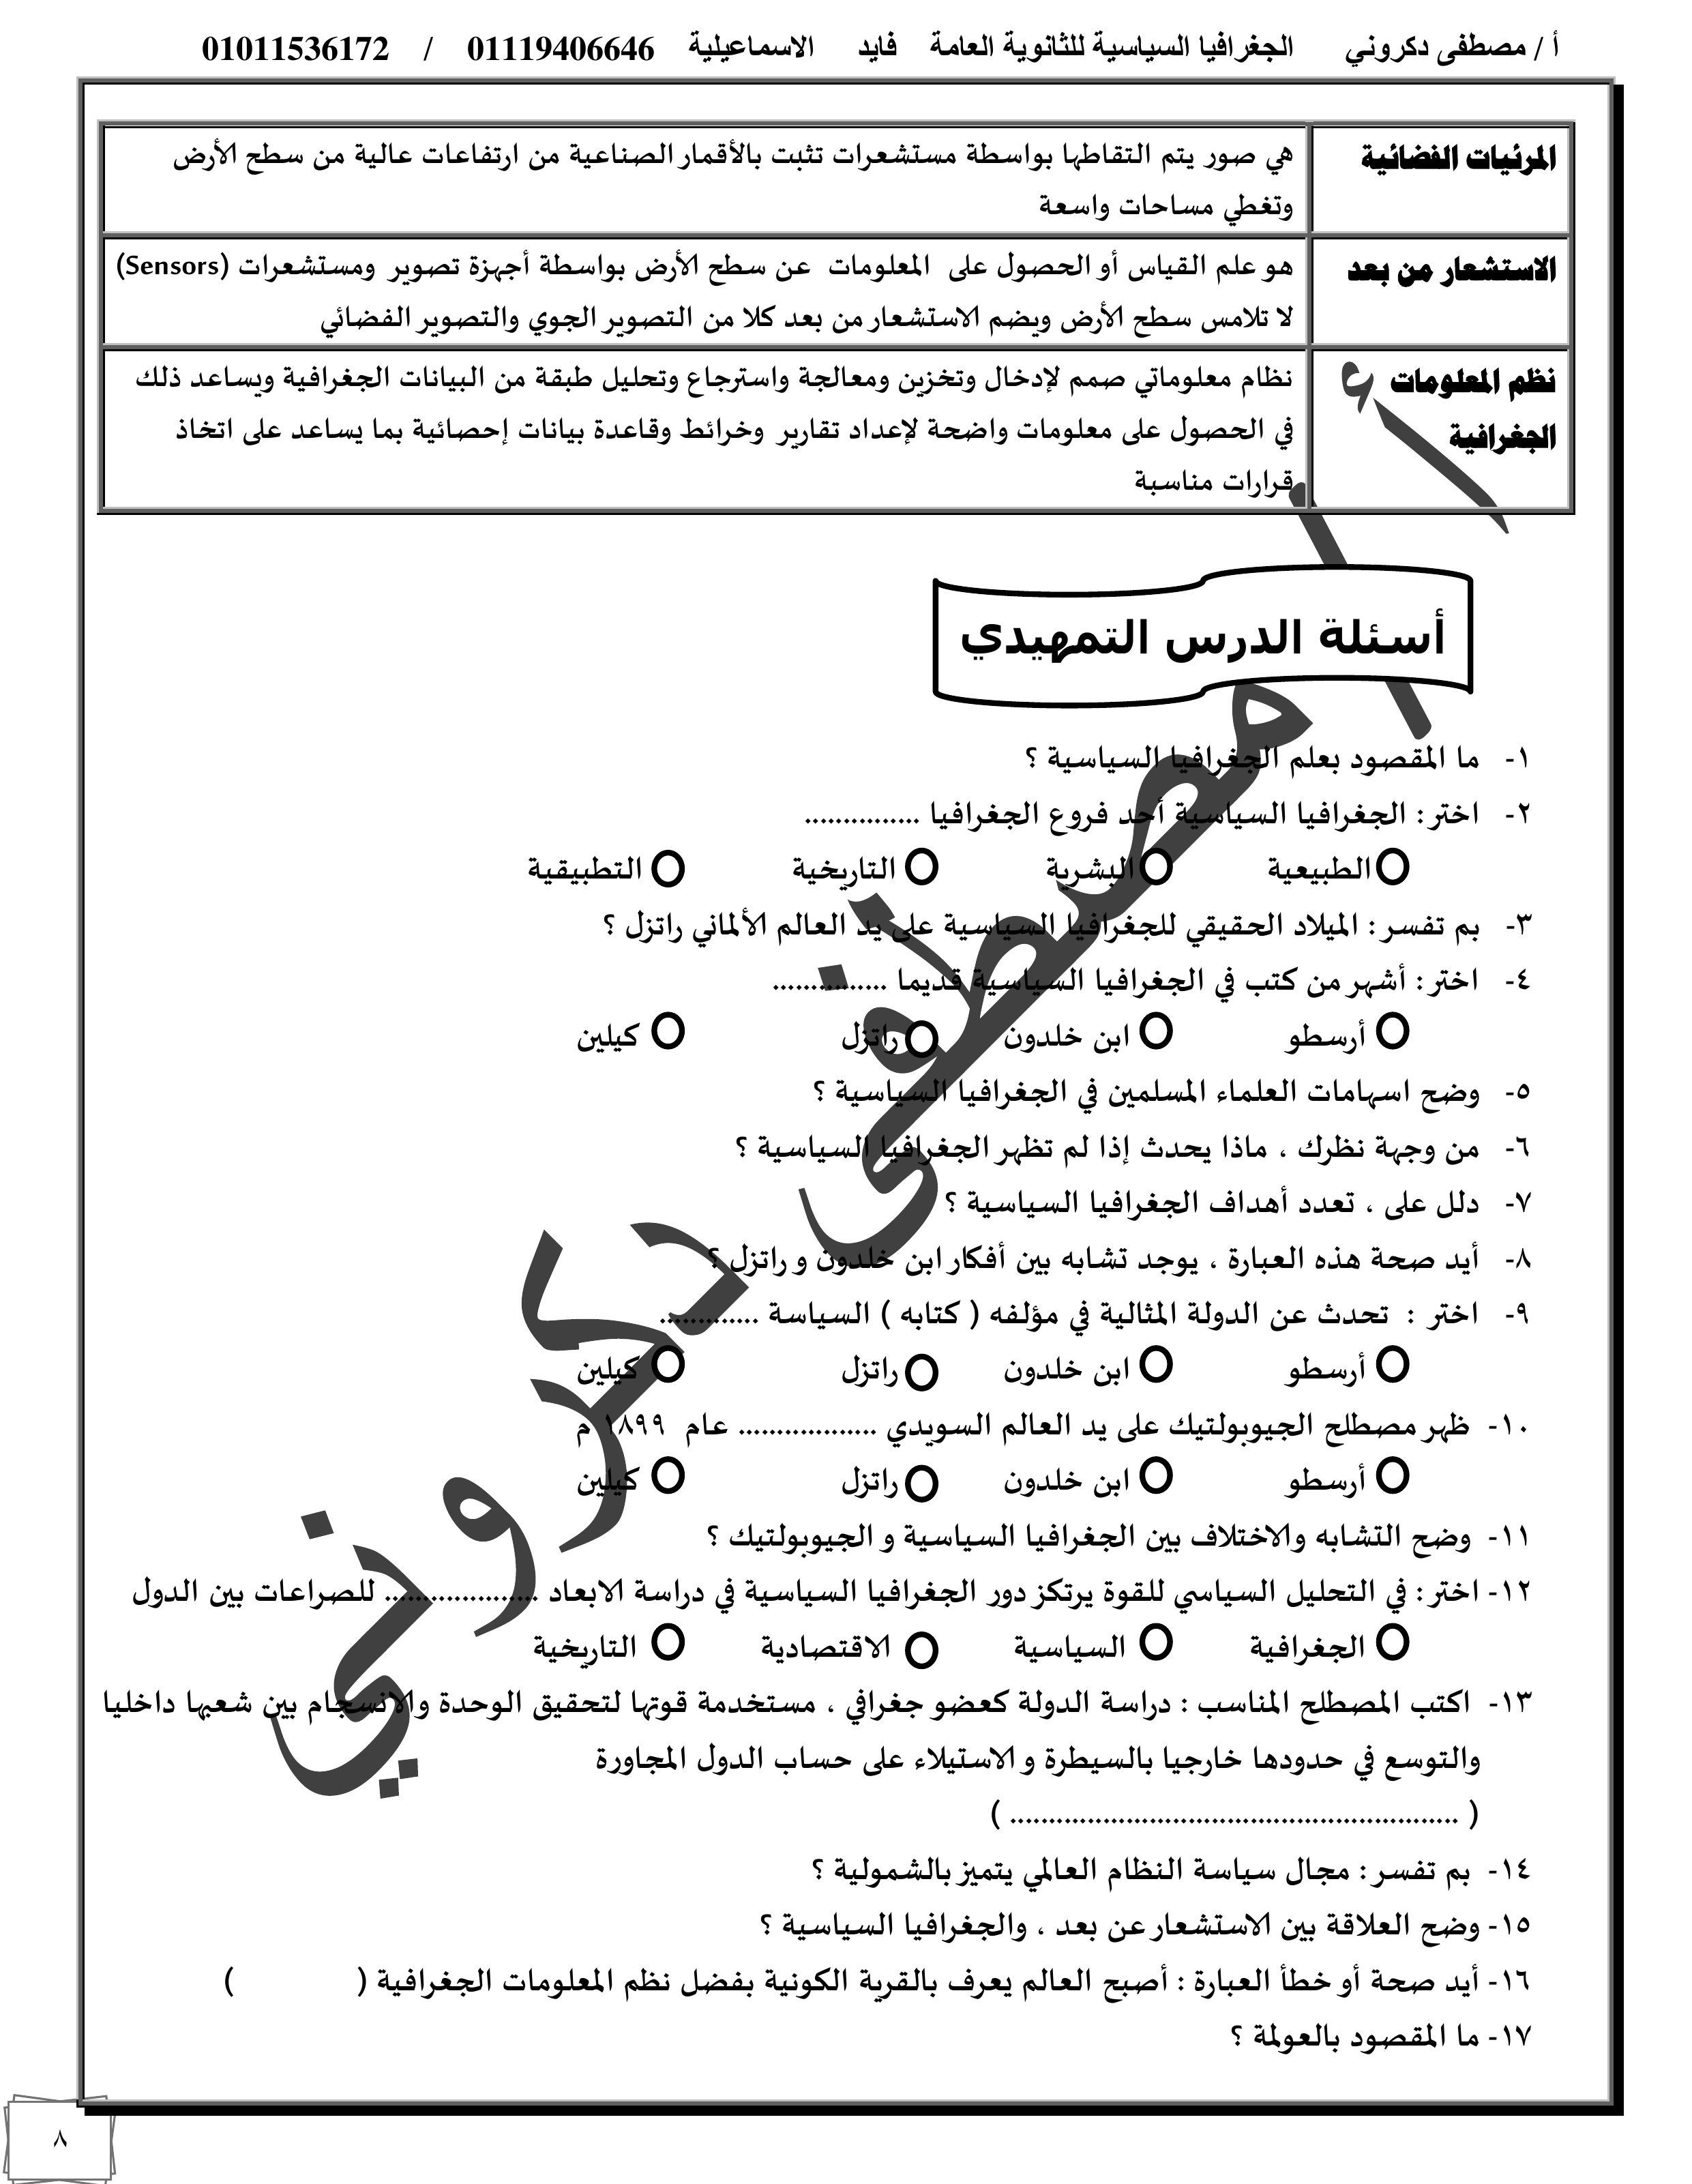 أ / مصطفى دكروني الجغرافيا السياسية للثانوية العامة فايد الاسماعيلية 01119406646 / 01011536172
المرئيات الفضائية
هي صور يتم التقاطها بواسطة مستشعرات تثبت بالأقمار الصناعية من ارتفاعات عالية من سطح الأرض
وتغطي مساحات واسعة
الاستشعار من بعد
هو علم القياس أو الحصول على المعلومات عن سطح الأرض بواسطة أجهزة تصوير ومستشعرات (Sensors)
لا تلامس سطح الأرض ويضم الاستشعار من بعد كلا من التصوير الجوي والتصوير الفضائي
نظم المعلومات
الجغرافية
نظام معلوماتي صمم لإدخال وتخزين ومعالجة واسترجاع وتحليل طبقة من البيانات الجغرافية ويساعد ذلك
في الحصول على معلومات واضحة لإعداد تقارير وخرائط وقاعدة بيانات إحصائية بما يساعد على اتخاذ
قرارات مناسبة
أسئلة الدرس التمهيدي
١- ما المقصود بعلم الجغرافيا السياسية ؟
٢- اختر : الجغرافيا السياسية أحد فروع الجغرافيا ...............
الطبيعية البشرية التاريخية التطبيقية
٣- بم تفسر : الميلاد الحقيقي للجغرافيا السياسية على يد العالم الألماني راتزل ؟
٤- اختر : أشهر من كتب في الجغرافيا السياسية قديما ...............
أرسطو ابن خلدون راتزل كيلين
٥- وضح اسهامات العلماء المسلمين في الجغرافيا السياسية ؟
٦- من وجهة نظرك ، ماذا يحدث إذا لم تظهر الجغرافيا السياسية ؟
٧- دلل على ، تعدد أهداف الجغرافيا السياسية ؟
٨- أيد صحة هذه العبارة ، يوجد تشابه بين أفكار ابن خلدون و راتزل ؟
٩- اختر : تحدث عن الدولة المثالية في مؤلفه ( كتابه ) السياسة .............
أرسطو ابن خلدون راتزل كيلين
١٠- ظهر مصطلح الجيوبولتيك على يد العالم السويدي .................. عام ١٨٩٩ م
أرسطو ابن خلدون راتزل كيلين
١١- وضح التشابه والاختلاف بين الجغرافيا السياسية و الجيوبولتيك ؟
١٢- اختر : في التحليل السياسي للقوة يرتكز دور الجغرافيا السياسية في دراسة الابعاد .................... للصراعات بين الدول
الجغرافية السياسية الاقتصادية التاريخية
١٣- اكتب المصطلح المناسب : دراسة الدولة كعضو جغرافي ، مستخدمة قوتها لتحقيق الوحدة والانسجام بين شعبها داخليا
والتوسع في حدودها خارجيا بالسيطرة و الاستيلاء على حساب الدول المجاورة
( .......................................................... )
١٤- بم تفسر : مجال سياسة النظام العالمي يتميز بالشمولية ؟
١٥- وضح العلاقة بين الاستشعار عن بعد ، والجغرافيا السياسية ؟
١٦- أيد صحة أو خطأ العبارة : أصبح العالم يعرف بالقرية الكونية بفضل نظم المعلومات الجغرافية ( )
١٧- ما المقصود بالعولمة ؟
أ / مصطفى دكروني
٨